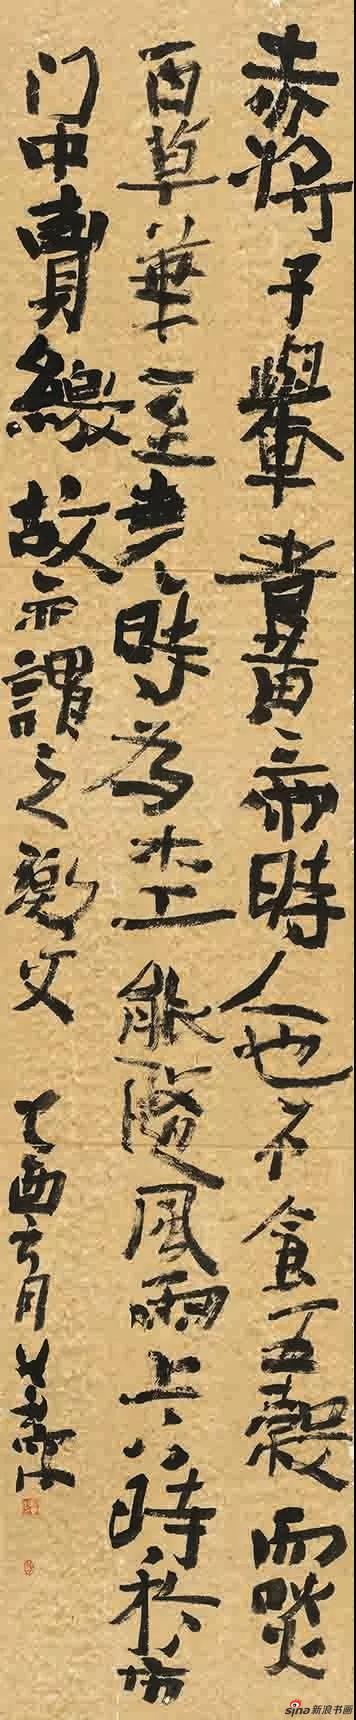 赤将子轝者黄帝時人也不食五穀而啖
百草華至尧時為木工能隨風雨上下時於市
门中賣繳故亦謂之繳父
乙酉六月
sina新浪书画